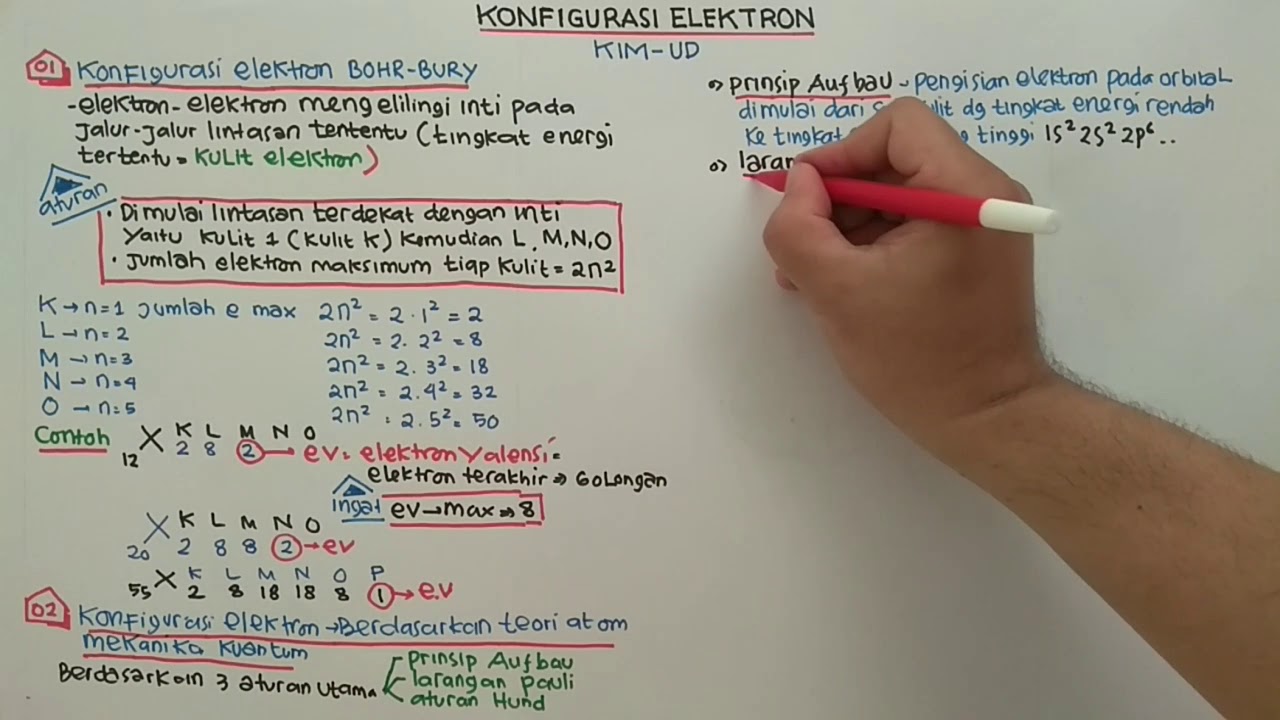 KONFIGURASI ELEKTRON
KIM-UD
01 Konfigurasi elektron BOHR-BURY
-elektron-elektron mengelilingi inti pada
jalur-jalur lintasan tententu (tingkat energi
tertentu = KULIT elektron)
aturan
• Dimulai lintasan terdekat dengan inti
yaitu kulit 1 (kulit K) kemudian L, M, N, O
• Jumlah elektron maksimum tiap kulit = 2n²
K → n=1 jumlah e max 2n² = 2 . 1² = 2
L → n=2 2n² = 2. 2² = 8
M → n=3 2n² = 2. 3² = 18
N → n=4 2n² = 2. 4² = 32
O → n=5 2n² = 2. 5² = 50
Contoh
K L M N O
12 X 2 8 2 → ev = elektron valensi =
elektron terakhir ⇒ Golongan
ingat ev → max ⇒ 8
K L M N O
20 X 2 8 8 2 → ev
K L M N O P
55 X 2 8 18 18 8 1 → e.v
02 Konfigurasi elektron → Berdasarkan teori atom
mekanika kuantum
Berdasarkan 3 aturan utama
prinsip Aufbau
larangan pauli
aturan Hund
o) prinsip Aufbau - pengisian elektron pada orbital
dimulai dari dg tingkat energi rendah
ke tingkat tinggi 1s² 2s² 2p⁶ ..
o) laran